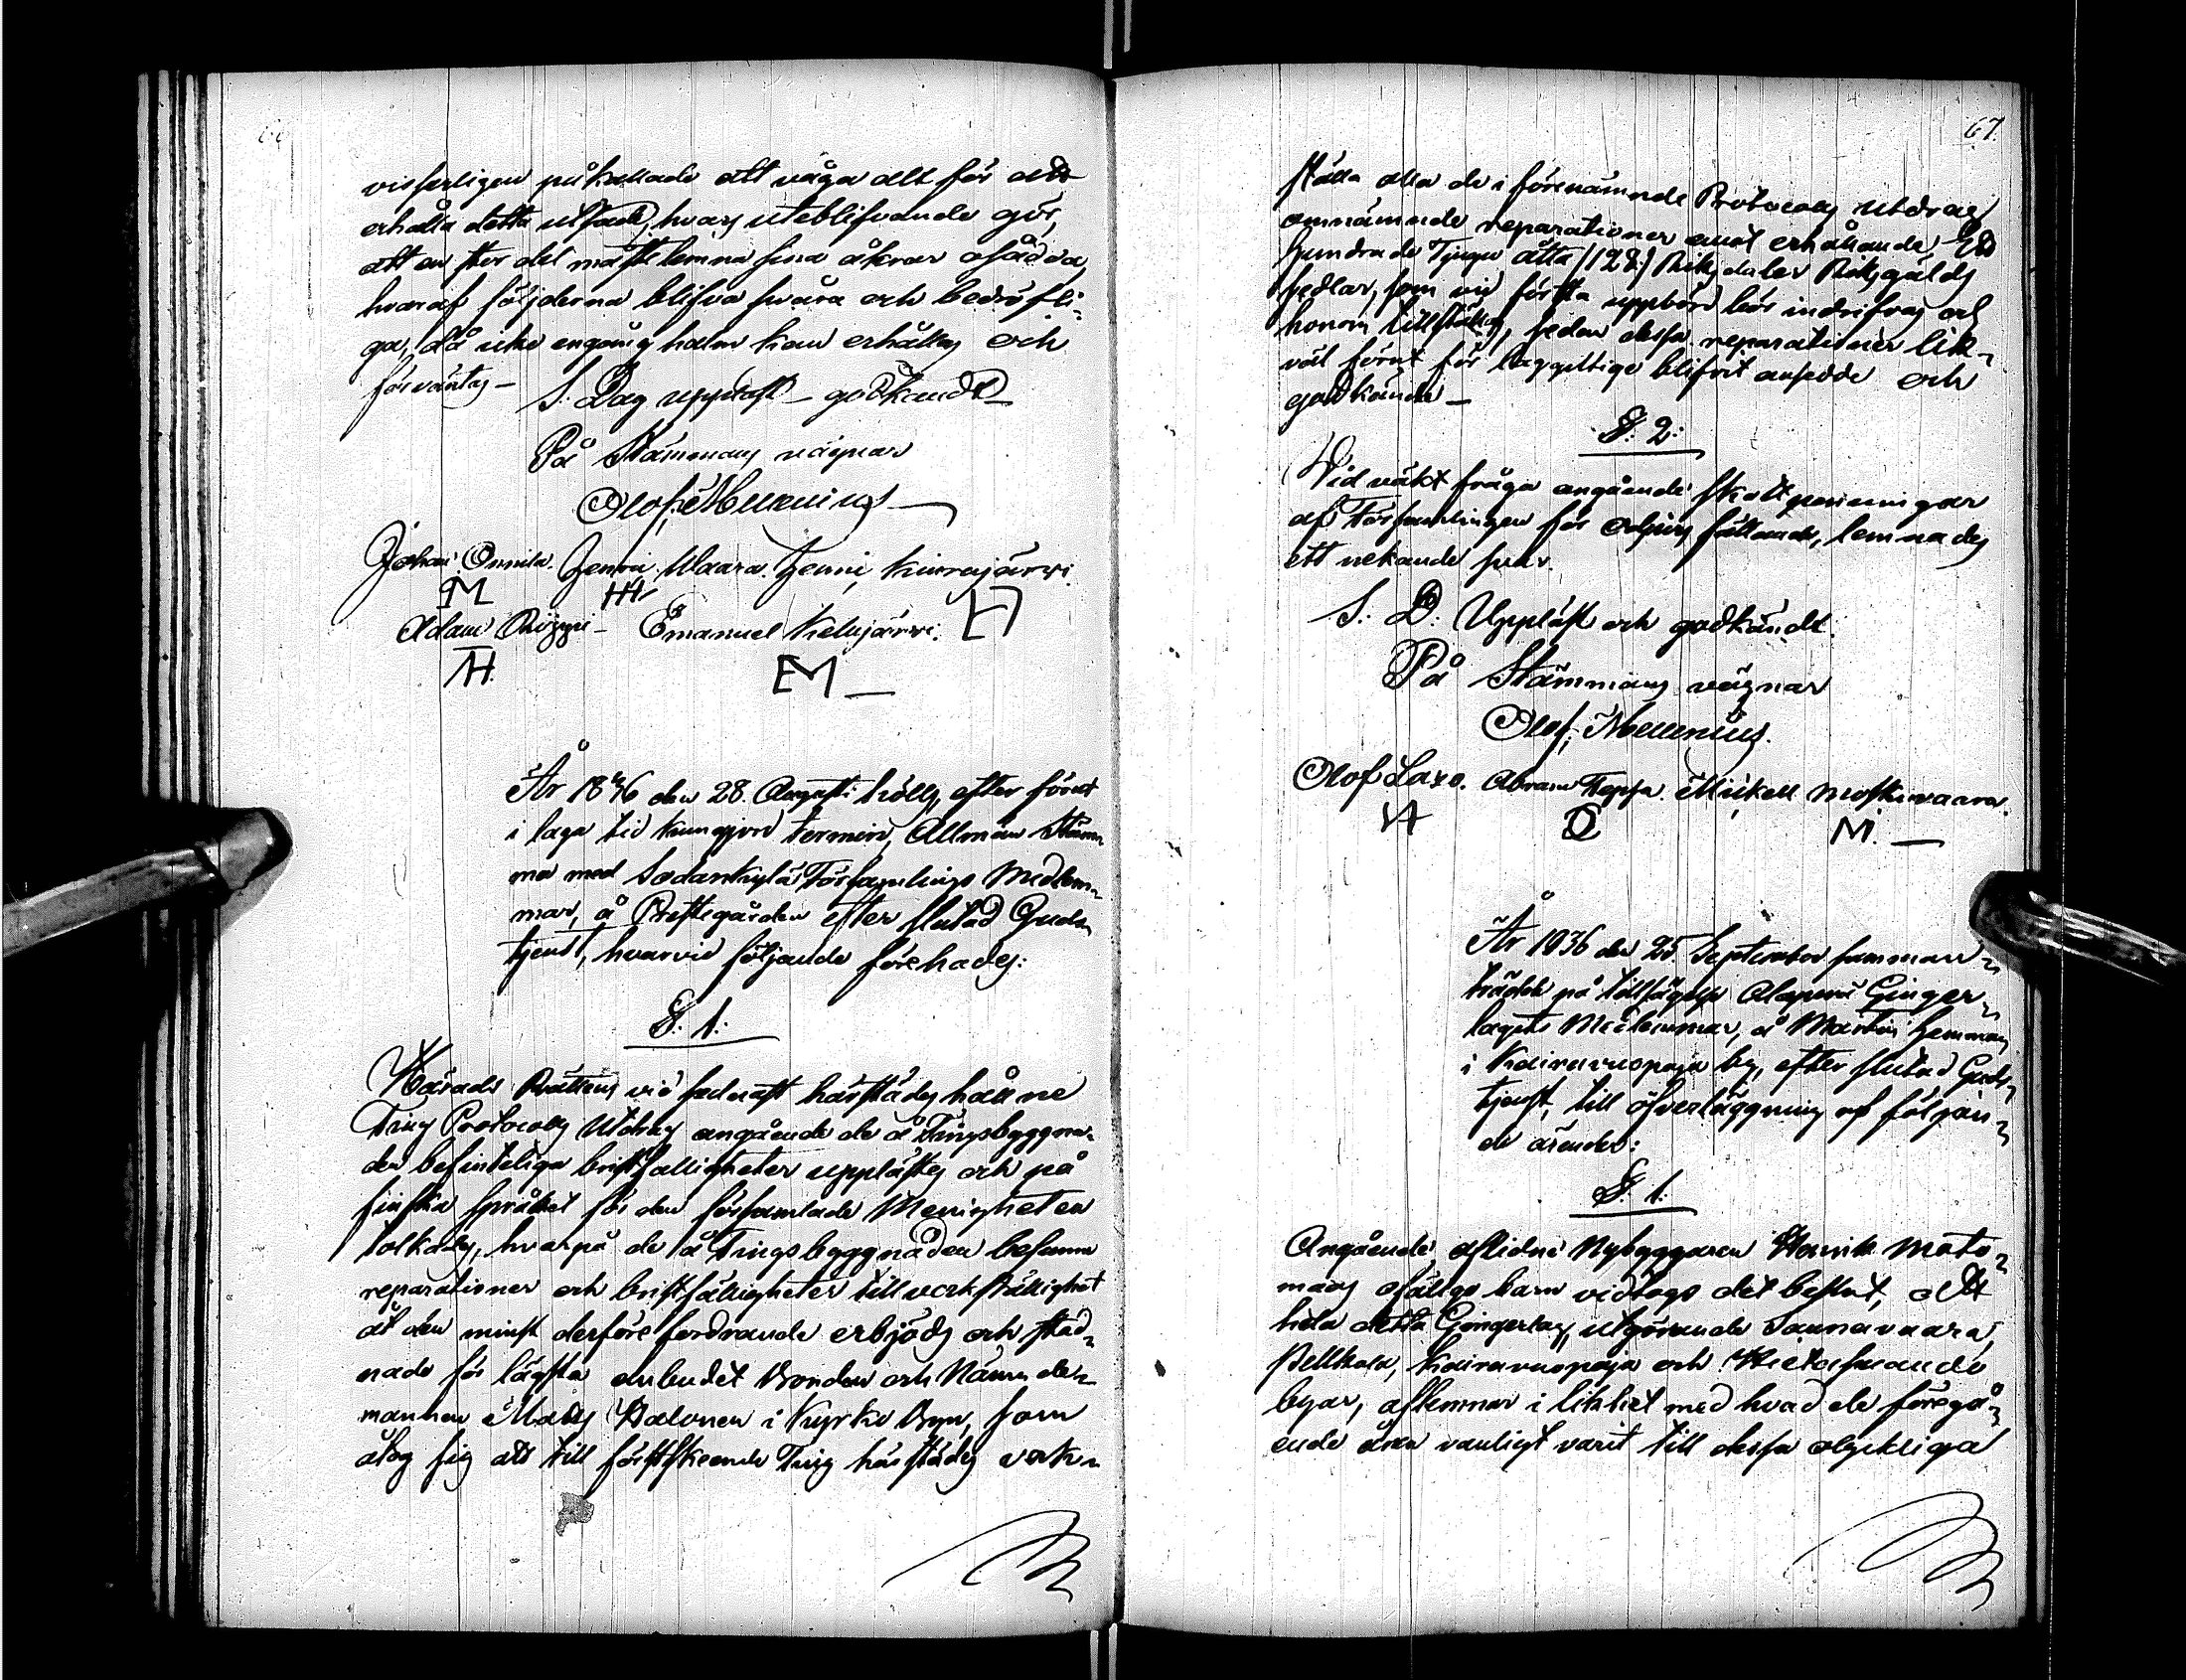 visserligen påkallade att våga allt för att
erhålla detta utsäde, hvars uteblifvande gör,
att en stor del måste lemna sina åkrar osådda,
hvaraf följderna blifva svåra och bedröfli-
ga, då icke engång halm kan erhållas och
förväntas —
S. Dag uppläst — godkändt —
På Stämmans vägnar
Olof Mellenius —
Johan Onnila. Henric Waara. Henric Kinrajärvi.
M HH
Adam Pöyri — Emanuel Kelujärvi. H
AH. EM —
År 1836 den 28. Augusti hölls, efter förut
i laga tid kungjord termin, Allmän Stäm-
ma med Sodankylä Församlings Medlem-
mar, å Prestegården efter slutad Guds-
tjenst, hvarvid följande förehades:
§. 1:
Härads Rättens vid sednast härstädes hållne
Ting Protocolls Utdrag angående de å Tingsbyggna-
den befinteliga bristfälligheter upplästes och på
finska språket för den församlade Menigheten
tolkades, hvarpå de å Tingsbyggnaden befunne
reparationer och bristfälligheter till verkställighet
åt den minst derföre fordrande erbjöds och stad-
nade för lägsta anbudet Bonden och Nämnde-
mannen Mats Halonen i Kyrko Byn, som
åtog sig att till förstskeende Ting härstädes verk-
67.
ställa alla de i förenämnde Protocolls utdrag
omnämnde reparationer emot erhållande Ett
hundrade Tjugu åtta (128) Riksdaler Riksgälds
sedlar, som vid första uppbörd bör indrifvas och
honom tillställas, sedan dessa reparationer lik-
väl förut för laggiltige blifvit ansedde och
godkände —
§. 2:
Vid väkt fråga angående skottpenningar
af Församlingen för fällande, lemnades
ett nekande svar.
S. D. Uppläst och godkändt.
På Stämmans vägnar
Olof Mellenius.
Olof Laxo. Abram Seppä. Mickell Moskuvaara.
M. —
År 1836 den 25 September samman-
trädde på tillsägelse Alaperä Ginger-
lagets Medlemmar, å Martin hemman
i Kairavuopaja by, efter slutad Guds-
tjenst, till öfverläggning af följan-
de ärender:
§. 1:
Angående aflidne Nybyggaren Henrik Mato-
maas ofällga barn vidtogs det beslut, att
hela detta Gingerlag, utgörande Saunavaara,
Pelkkosen, Kairavuopaja och Suvando
byar, aflemnar i likhet med hvad de föregå-
ende åren vanligt varit till dessa olyckliga